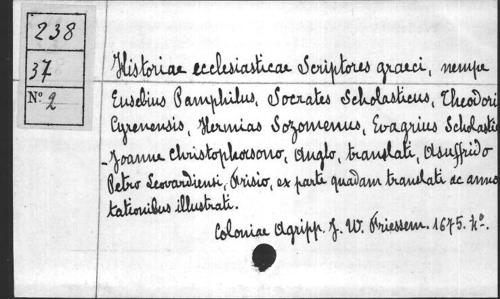 238
37
No. 2
Historiae ecclesiasticae Scriptores graeci, nempe
Eusebius Pamphilus, Socrates Scholasticus, Theodori
Cyrenensis, Hermias Sozomenus, Evagrius Scholasti
-Joanne Christophorsono, Anglo, translati, a Suffrido
Petro Leovardiensi, Frisio, ex parte quadam translati ac anno
tationibus illustrati.
Coloniae Agripp. J. W. Friessem. 1675. 4o.